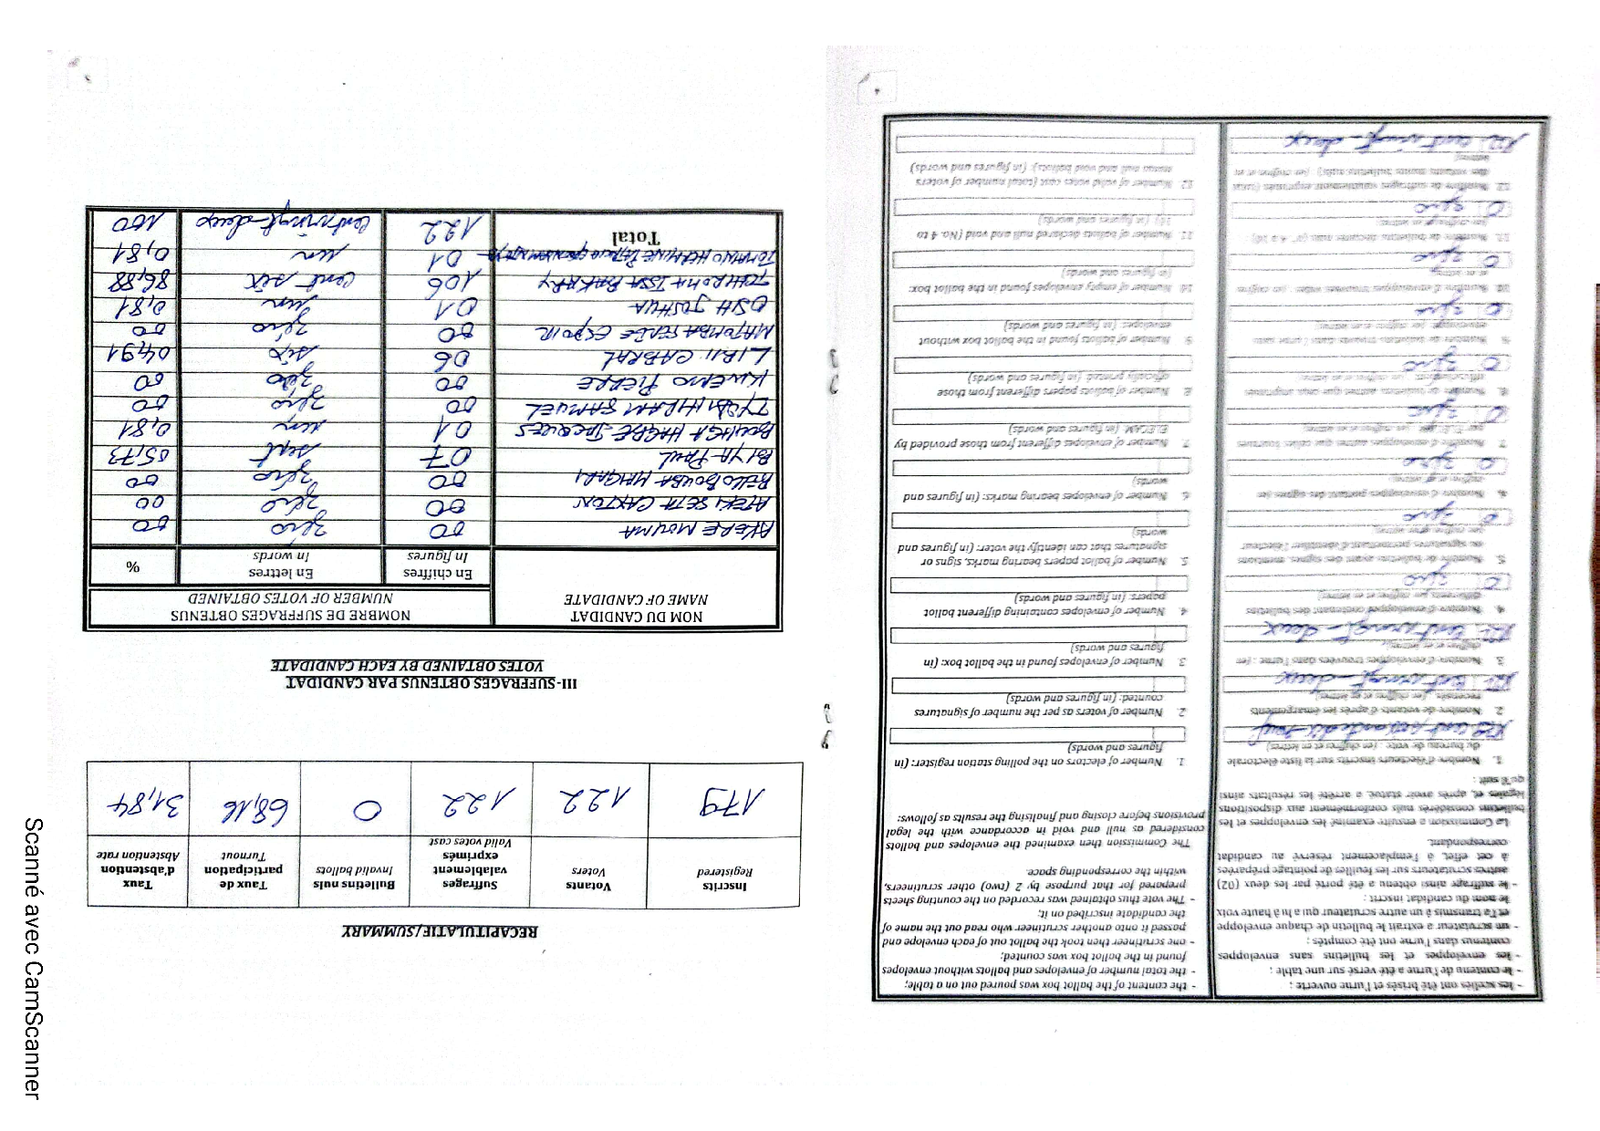 - les scellés ont été brisés et l'urne ouverte ;
- le contenu de l'urne a été versé sur une table ;
- les enveloppes et les bulletins sans enveloppes
contenus dans l'urne ont été comptés ;
- un scrutateur a extrait le bulletin de chaque enveloppe
et l'a transmis à un autre scrutateur qui a lu à haute voix
le nom du candidat inscrit ;
- le suffrage ainsi obtenu a été porté par les deux (02)
autres scrutateurs sur les feuilles de pointage préparées
à cet effet, à l'emplacement réservé au candidat
correspondant.
La Commission a ensuite examiné les enveloppes et les
bulletins considérés nuls conformément aux dispositions
légales et, après avoir statué, a arrêté les résultats ainsi
qu'il suit :
1. Nombre d'électeurs inscrits sur la liste électorale
du bureau de vote : (en chiffres et en lettres)
2. Nombre de votants d'après les émargements
recensés : (en chiffres et en lettres)
cent vingt-deux
3. Nombre d'enveloppes trouvées dans l'urne : (en
chiffres et en lettres)
cent vingt-deux
4. Nombre d'enveloppes contenant des bulletins
différents (en chiffres et en lettres)
0 zéro
5. Nombre de bulletins ayant des signes, mentions
ou signatures permettant d'identifier l'électeur
0 zéro
6. Nombre d'enveloppes portant des signes (en
chiffres et en lettres)
0 zéro
7. Nombre d'enveloppes autres que celles fournies
0 zéro
8. Nombre de bulletins autres que ceux imprimés
0 zéro
9. Nombre de bulletins trouvés dans l'urne sans
0 zéro
10. Nombre d'enveloppes trouvées vides : (en chiffres
et en lettres)
0 zéro
11. Nombre de bulletins déclarés nuls (n°. 4 à 10)
(en chiffres et en lettres)
0 zéro
12. Nombre de suffrages valablement exprimés (total
des votants moins bulletins nuls) (en chiffres et en
lettres)
cent vingt-deux
- the content of the ballot box was poured out on a table;
- the total number of envelopes and ballots without envelopes
found in the ballot box was counted;
- one scrutineer then took the ballot out of each envelope and
passed it onto another scrutineer who read out the name of
the candidate inscribed on it;
- The vote thus obtained was recorded on the counting sheets
prepared for that purpose by 2 (two) other scrutineers,
within the corresponding space.
The Commission then examined the envelopes and ballots
considered as null and void in accordance with the legal
provisions before closing and finalising the results as follows:
1. Number of electors on the polling station register: (in
figures and words)
2. Number of voters as per the number of signatures
counted: (in figures and words)
3 Number of envelopes found in the ballot box: (in
figures and words)
4 Number of envelopes containing different ballot
papers: (in figures and words)
5. Number of ballot papers bearing marks, signs or
signatures that can identify the voter: (in figures and
words)
6. Number of envelopes bearing marks: (in figures and
words)
7. Number of envelopes different from those provided by
ELECAM: (in figures and words)
8. Number of ballots papers different from those
officially printed: (in figures and words)
9 Number of ballots found in the ballot box without
envelopes: (in figures and words)
10 Number of empty envelopes found in the ballot box:
(in figures and words)
11 Number of ballots declared null and void (No. 4 to
10) (in figures and words)
12 Number of valid votes cast (total number of voters
minus null and void ballots): (in figures and words)
RECAPITULATIF/SUMMARY
Inscrits Registered | Votants Voters | Suffrages valablement exprimés Valid votes cast | Bulletins nuls Invalid ballots | Taux de participation Turnout | Taux d'abstention Abstention rate
179 | 122 | 122 | 0 | 68,16 | 31,84
III-SUFFRAGES OBTENUS PAR CANDIDAT
VOTES OBTAINED BY EACH CANDIDATE
NOM DU CANDIDAT NAME OF CANDIDATE | NOMBRE DE SUFFRAGES OBTENUS NUMBER OF VOTES OBTAINED
En chiffres In figures | En lettres In words | %
AKERE MOUNA 00 zéro 00
ATEKI SETA CAXTON 00 zéro 00
BELLO BOUBA MAIGARI 00 zéro 00
BIYA Paul 07 sept 05,73
BOUGHA HAGBE JACQUES 01 un 0,81
IYODI HIRAM SAMUEL 00 zéro 00
KWEMO PIERRE 00 zéro 00
LIBII CABRAL 06 six 04,91
MATOMBA SERGE ESPOIR 00 zéro 00
OSIH JOSHUA 01 un 0,81
TCHIROMA ISSA BAKARY 106 cent six 86,88
TOMAINO HERMINE PATRICIA 01 un 0,81
Total 122 cent vingt-deux 100
Scanné avec CamScanner